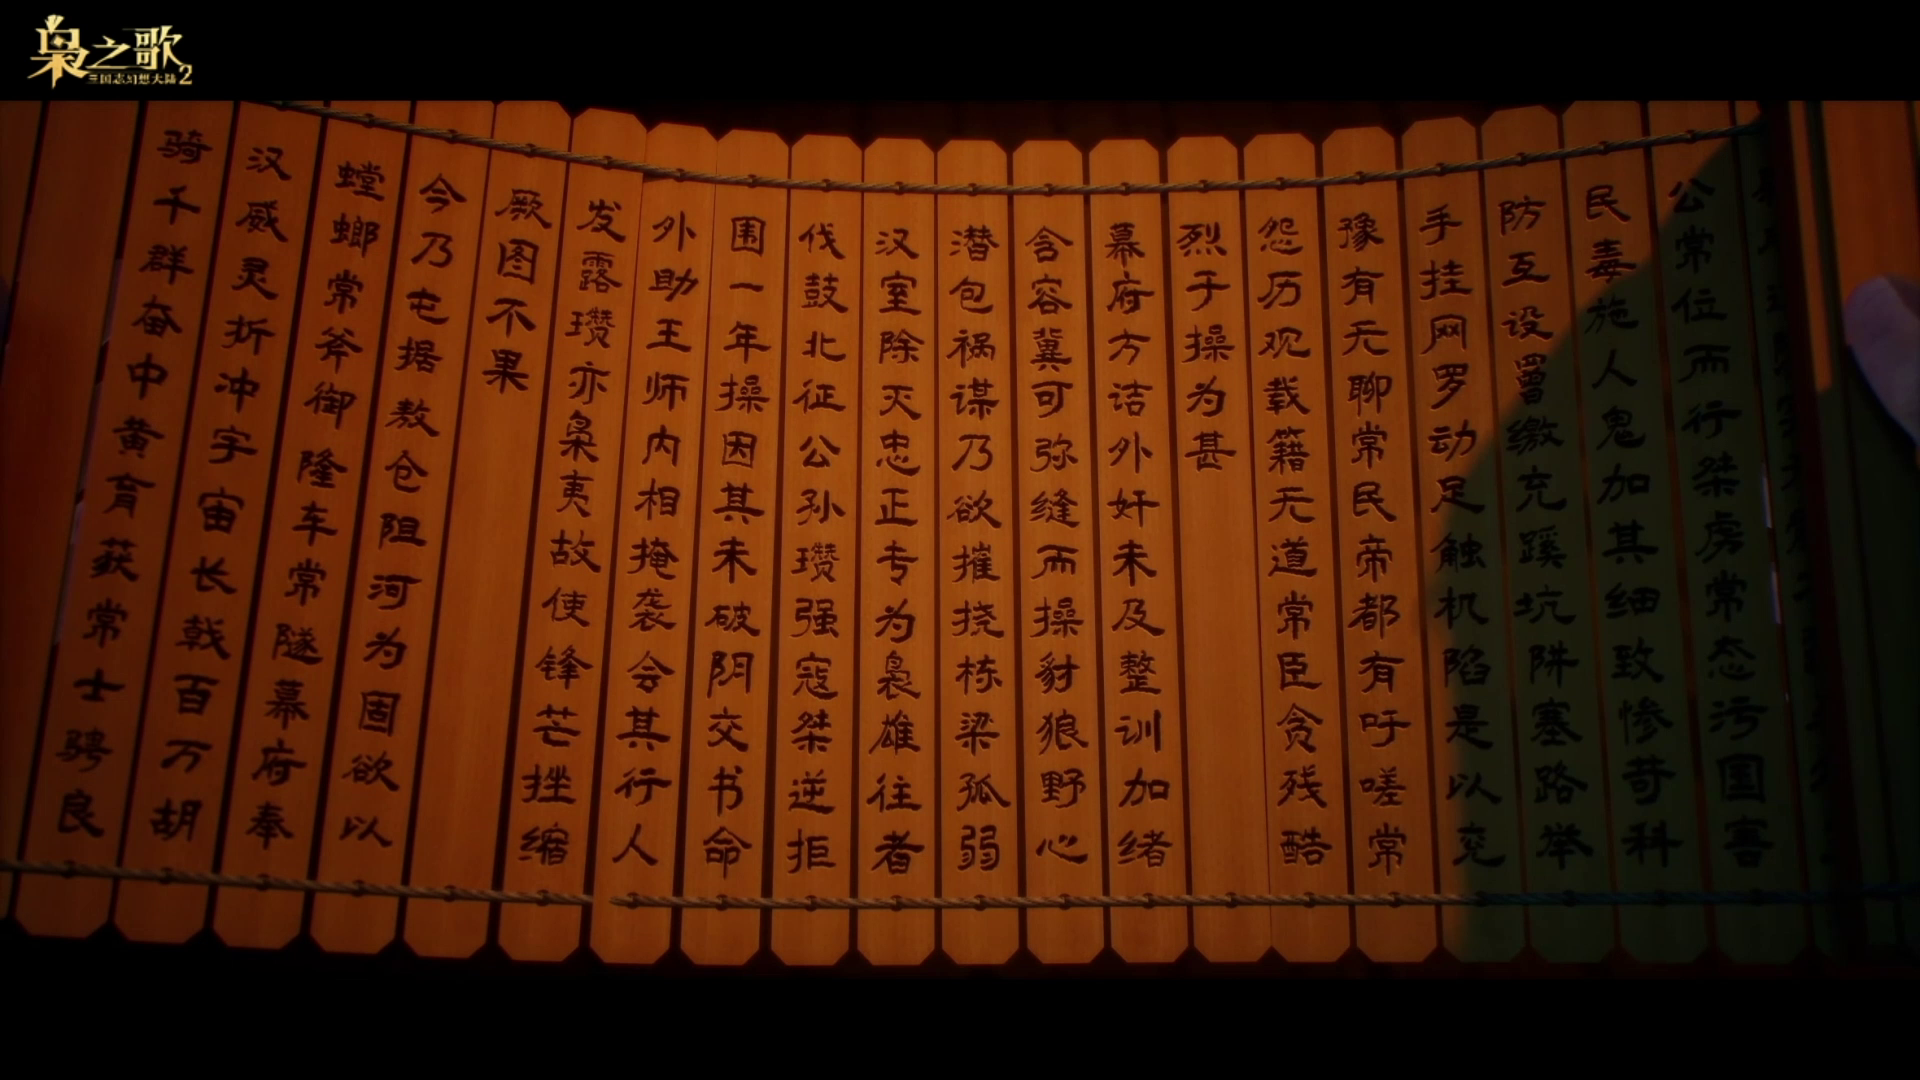 枭之歌
三国志幻想大陆2
公常位而行桀虏常态污国害
民毒施人鬼加其细致惨苛科
防互设罾缴充蹊坑阱塞路举
手挂网罗动足触机陷是以兖
豫有无聊常民帝都有吁嗟常
怨历观载籍无道常臣贪残酷
烈于操为甚
幕府方诘外奸未及整训加绪
含容冀可弥缝而操豺狼野心
潜包祸谋乃欲摧挠栋梁孤弱
汉室除灭忠正专为袅雄往者
伐鼓北征公孙瓒强寇桀逆拒
围一年操因其未破阴交书命
外助王师内相掩袭会其行人
发露瓒亦枭夷故使锋芒挫缩
厥图不果
今乃屯据敖仓阻河为固欲以
螳螂常斧御隆车常隧幕府奉
汉威灵折冲宇宙长戟百万胡
骑千群奋中黄育获常士骋良